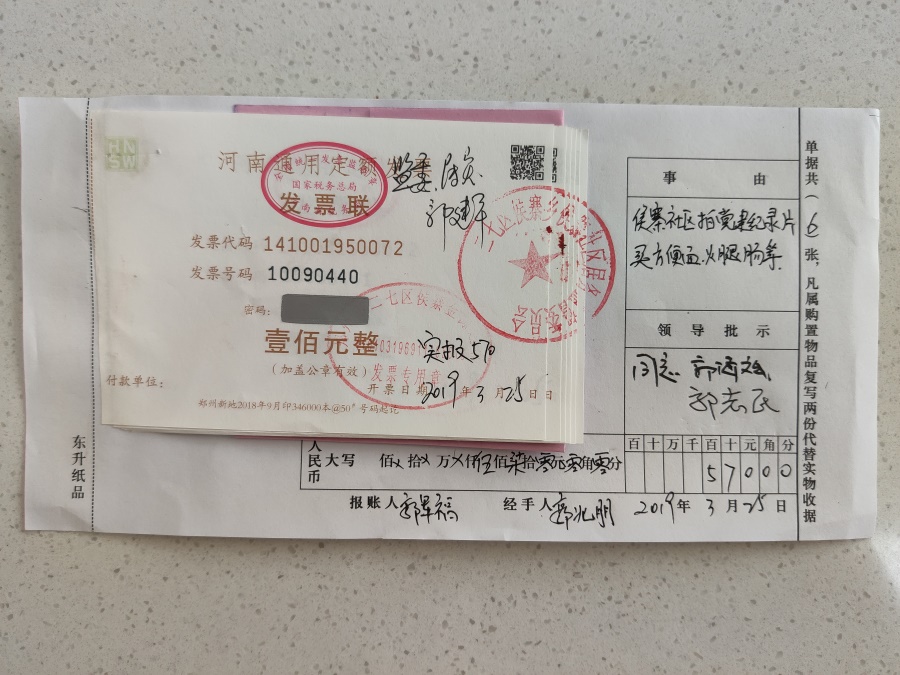 HN
SW
河南通用定额发票
国家税务总局
发票联
监委
发票代码 141001950072
发票号码 10090440
密码:
壹佰元整
实报570
(加盖公章有效)
发票专用章
付款单位:
开票日期 2019年3月25日
郑州新地2018年9月印346000本@50#号码起讫
事由
侯寨社区拍党建纪录片
买方便面.火腿肠等
领导批示
同意
郭志民
人民币
大写 佰 拾 万 仟伍佰柒拾零元零角零分
百十万千百十元角分
57000
报账人
经手人 郭兆朋
2019年3月25日
单据共(6张,凡属购置物品复写两份代替实物收据
东升纸品